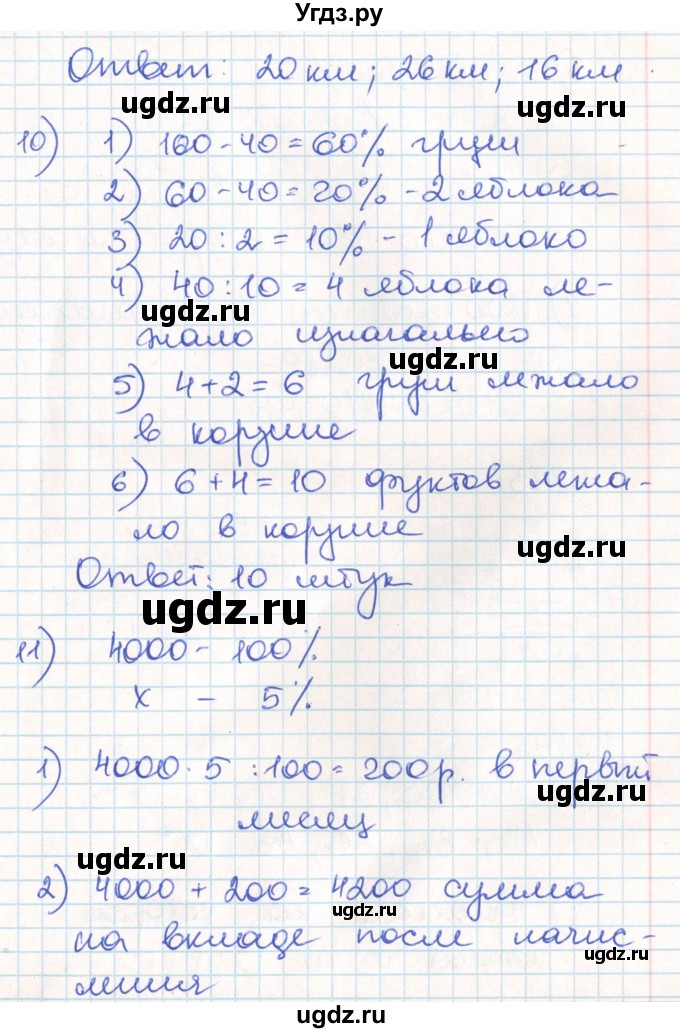 Угдз.ру
Ответ: 20 км; 26 км; 16 км
ugdz.ru ugdz.ru
10) 1) 100 - 40 = 60% груш
2) 60 - 40 = 20% - 2 яблока
ugdz.ru
3) 20 : 2 = 10% - 1 яблоко
4) 40 : 10 = 4 яблока ле-
ugdz.ru
жало изначально
5) 4 + 2 = 6 груш лежало
ugdz.ru
в корзине
6) 6 + 4 = 10 фруктов лежа-
ugdz.ru
ло в корзине
ugdz.ru
Ответ: 10 штук
ugdz.ru
11) 4000 - 100%
х - 5%
1) 4000 · 5 : 100 = 200 р. в первый
ugdz.ru
месяц
ugdz.ru
2) 4000 + 200 = 4200 сумма
ugdz.ru
на вкладе после начис-
ugdz.ru
ления
ugdz.ru